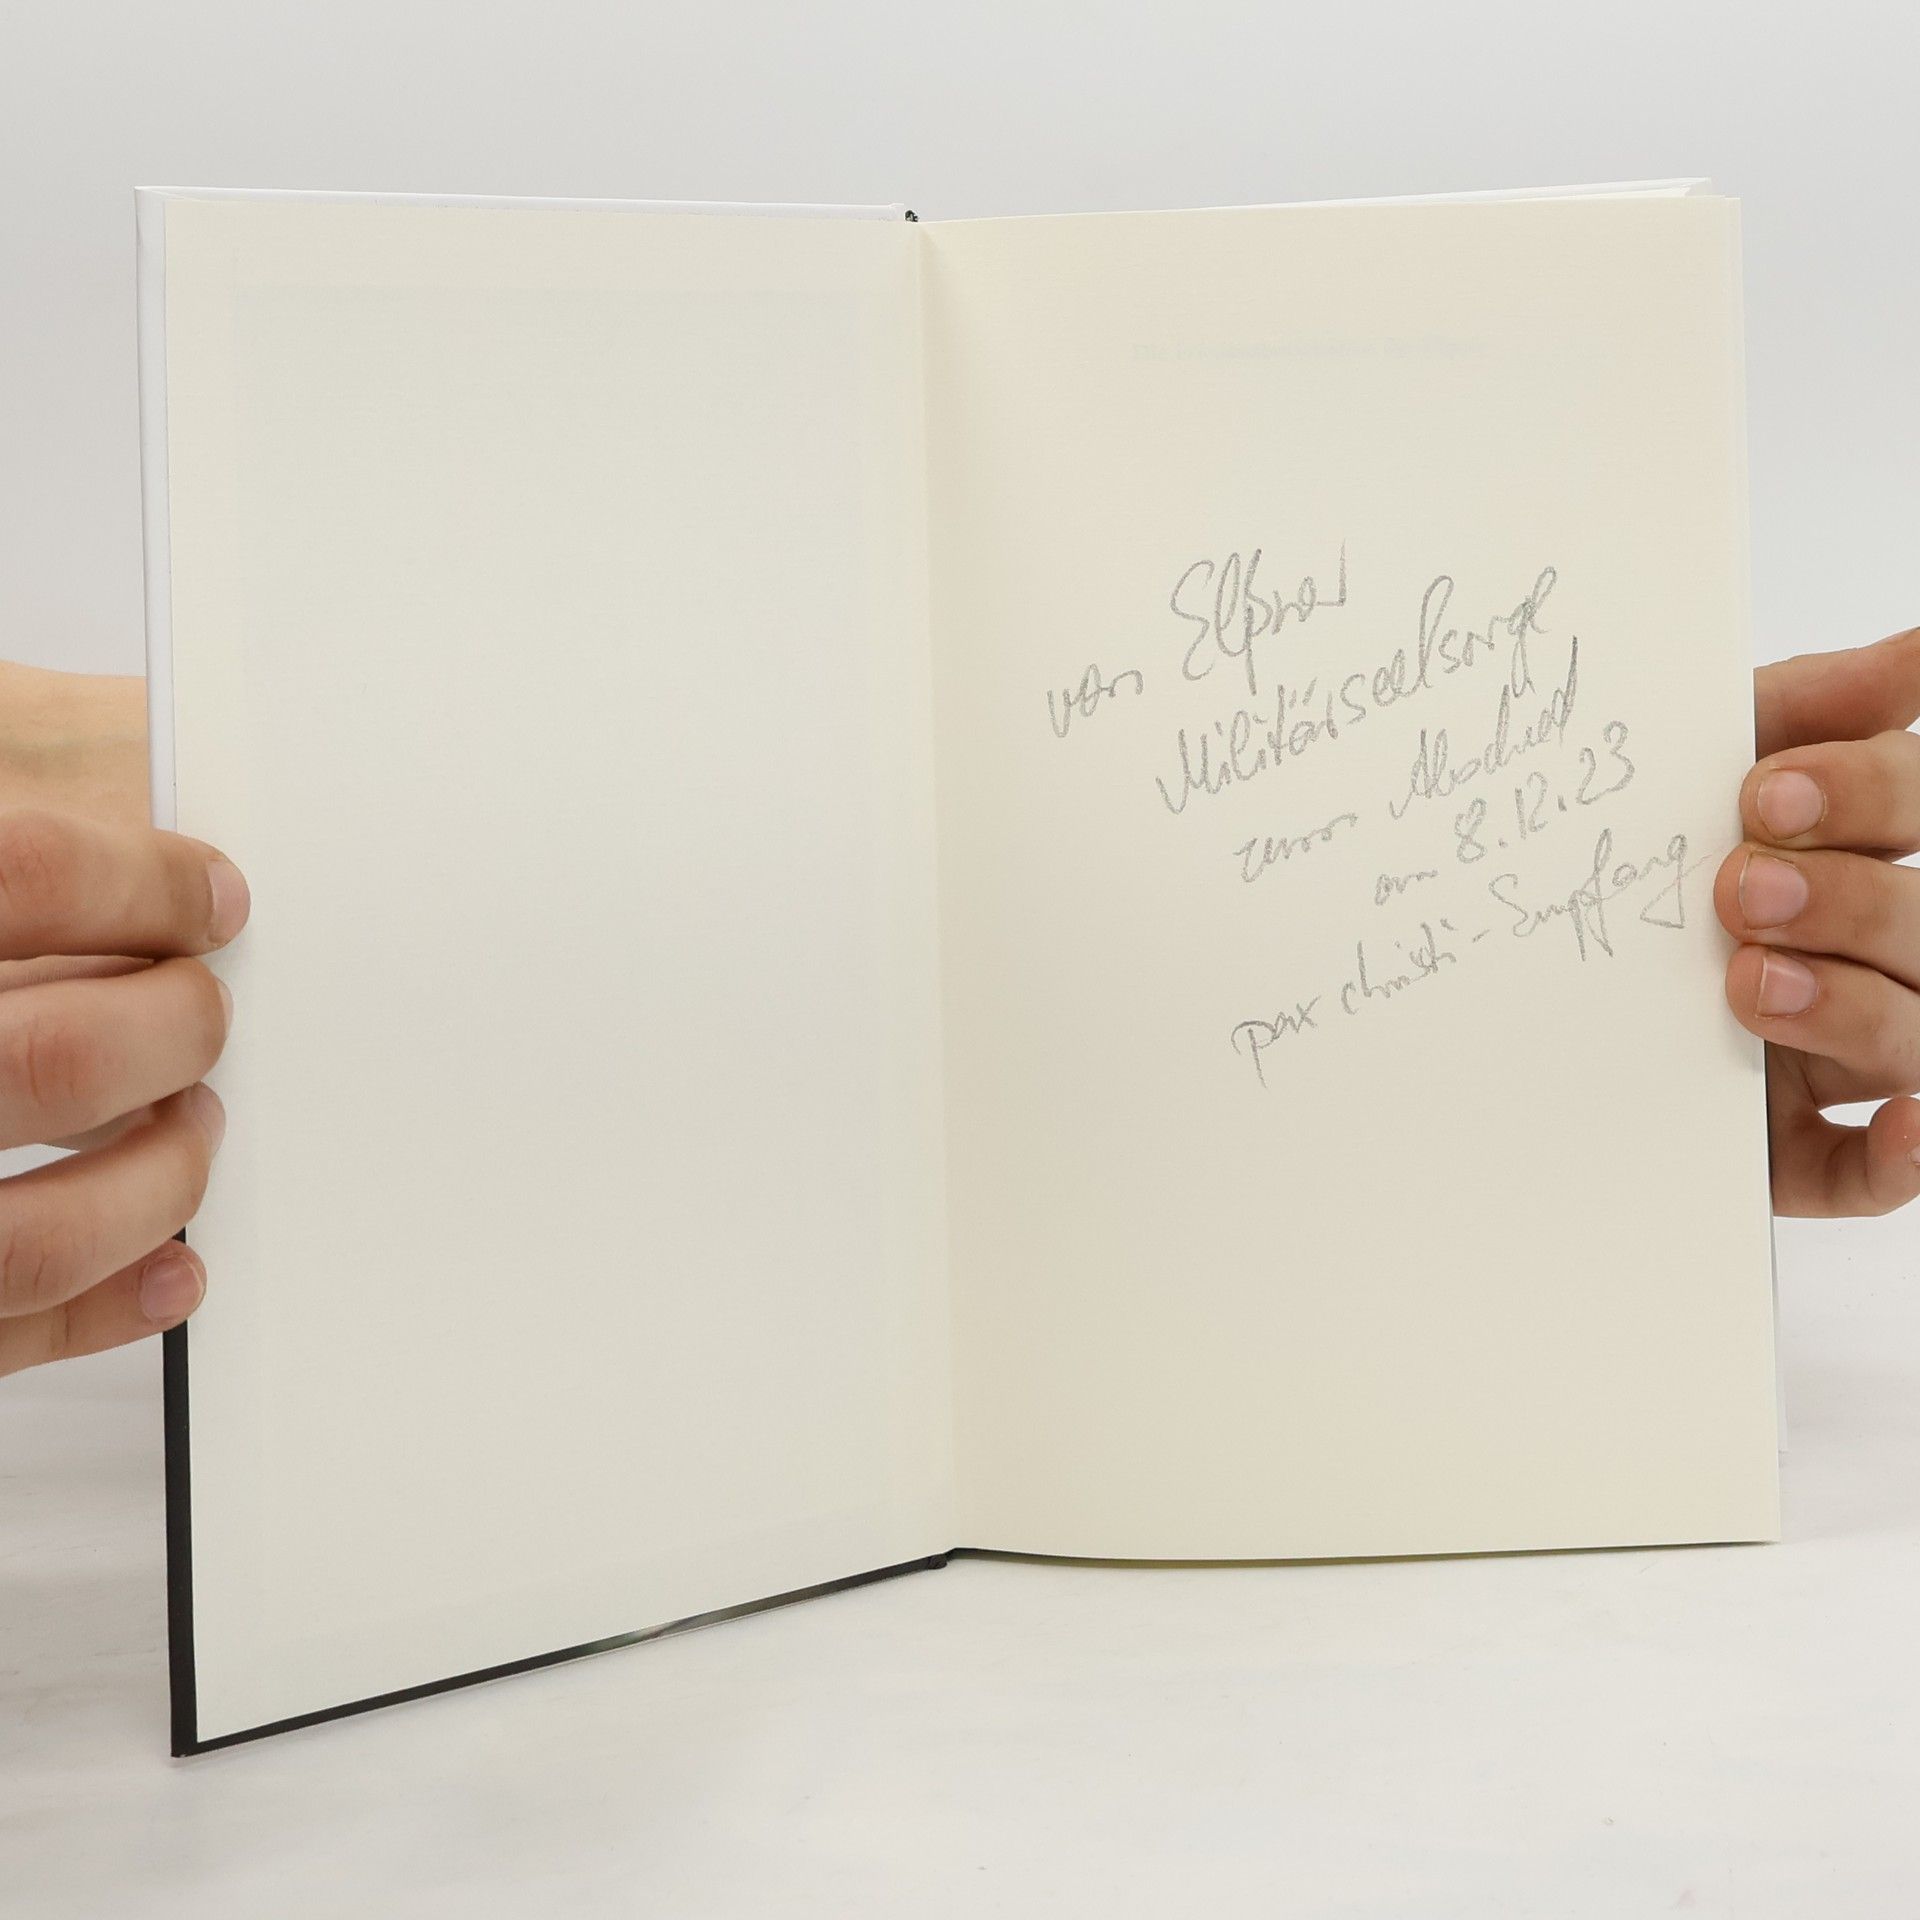 von
Militärseelsorge
zum Abschied
am 8.12.23
pax christi - Empfang